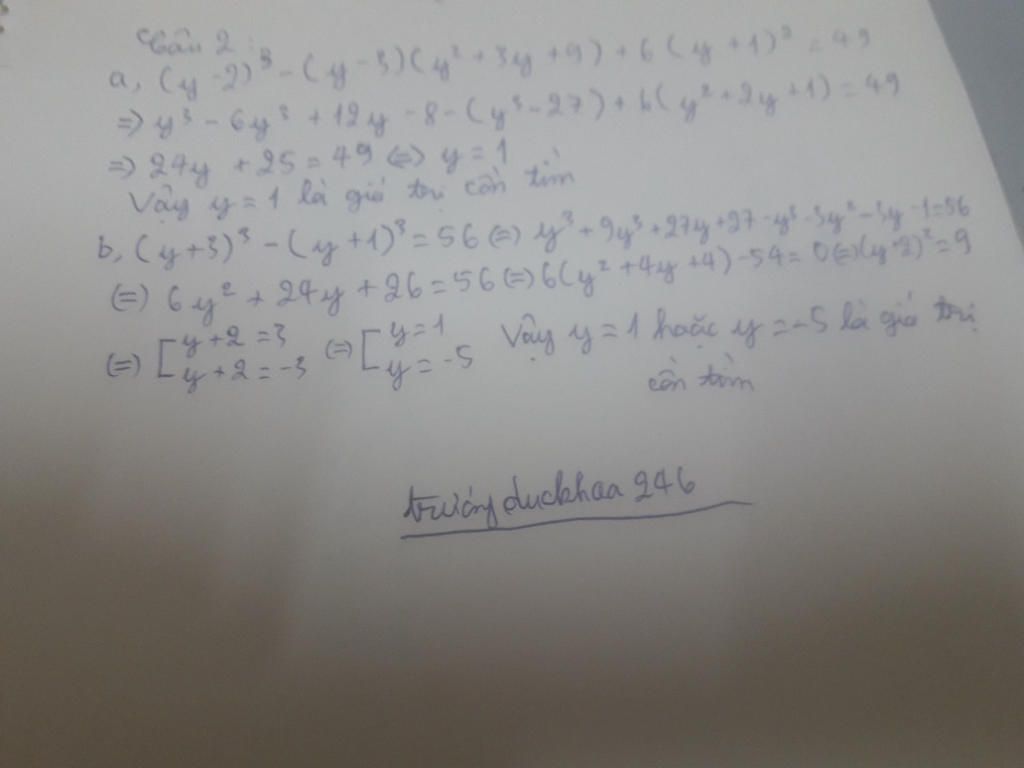 Câu 2:
a, (y - 2)³ - (y - 3)(y² + 3y + 9) + 6(y + 1)² = 49
=> y³ - 6y² + 12y - 8 - (y³ - 27) + 6(y² + 2y + 1) = 49
=> 24y + 25 = 49 <=> y = 1
Vậy y = 1 là giá trị cần tìm
b, (y + 3)³ - (y + 1)³ = 56 (=) y³ + 9y³ + 27y + 27 - y³ - 3y² - 3y - 1 = 56
(=) 6y² + 24y + 26 = 56 (=) 6(y² + 4y + 4) - 54 = 0 (=) (y + 2)² = 9
(=) [ y + 2 = 3 (=) [ y = 1 Vậy y = 1 hoặc y = -5 là giá trị
y + 2 = -3 y = -5
cần tìm
trương duckhoa 246